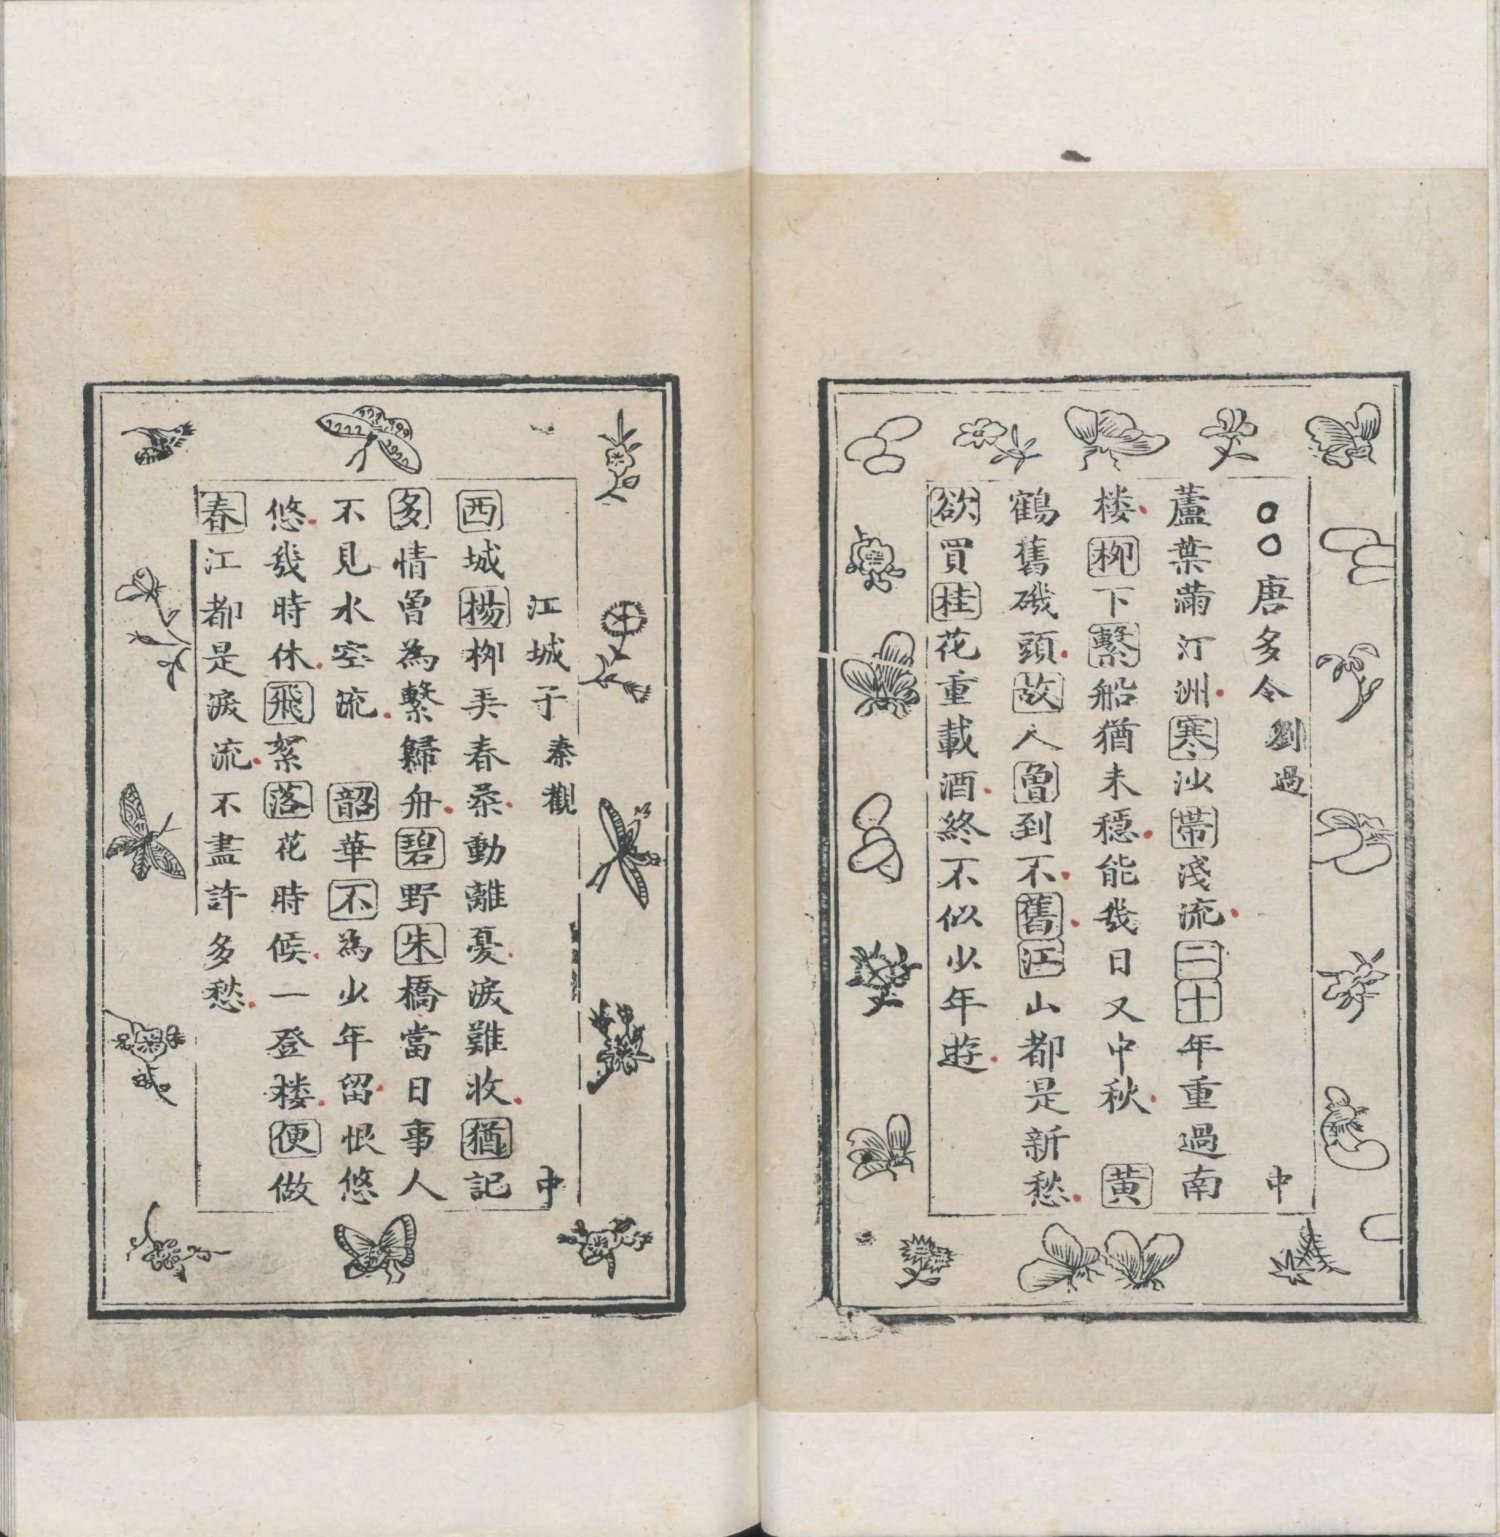 唐多令 劉過 中
蘆葉滿汀洲寒沙帶淺流二十年重過南
楼柳下繫船猶未穩能幾日又中秋 黃
鶴舊磯頭故人曾到不舊江山都是新愁
欲買桂花重載酒終不似少年遊
江城子 秦觀 中
西城楊柳弄春柔動離憂淚難收猶記
多情曾為繫歸舟碧野朱橋當日事人
不見水空流 韶華不為少年留恨悠
悠幾時休飛絮落花時候一登楼便做
春江都是淚流不盡許多愁